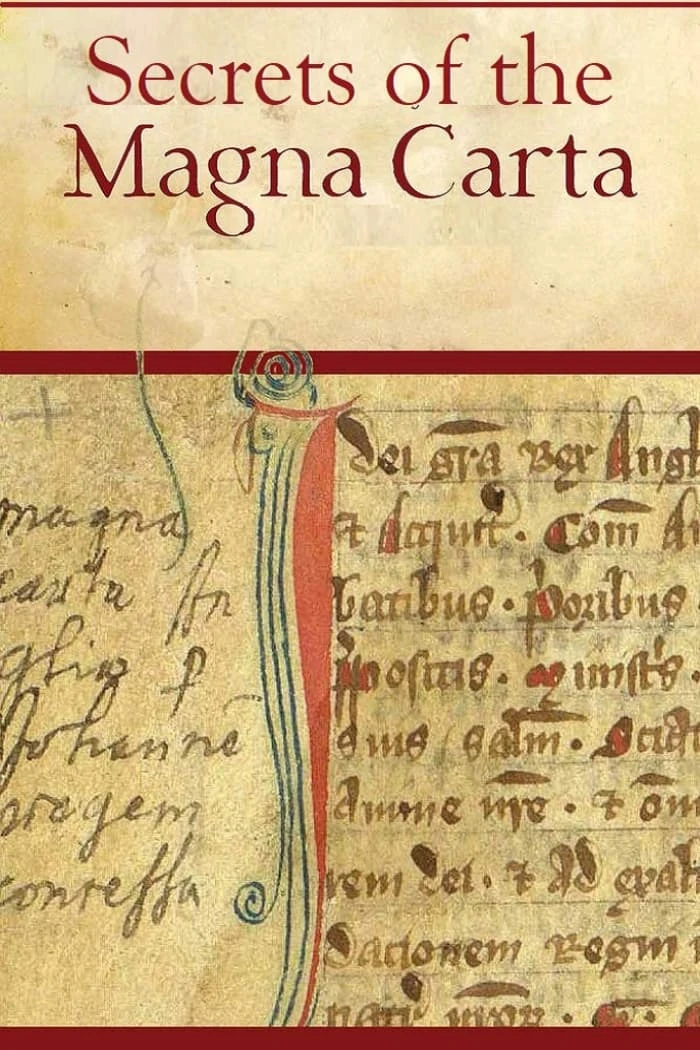 Secrets of the
Magna Carta
magna
carta An
glie p
Johanne
regem
concessa
dei gra Rex Angl
et Acquit. Com An
batibus. poribus
ppositis. Minist's.
suis salm. Sciat
Anime nre. et om
rem dei. et Ad exalt
dationem Regni